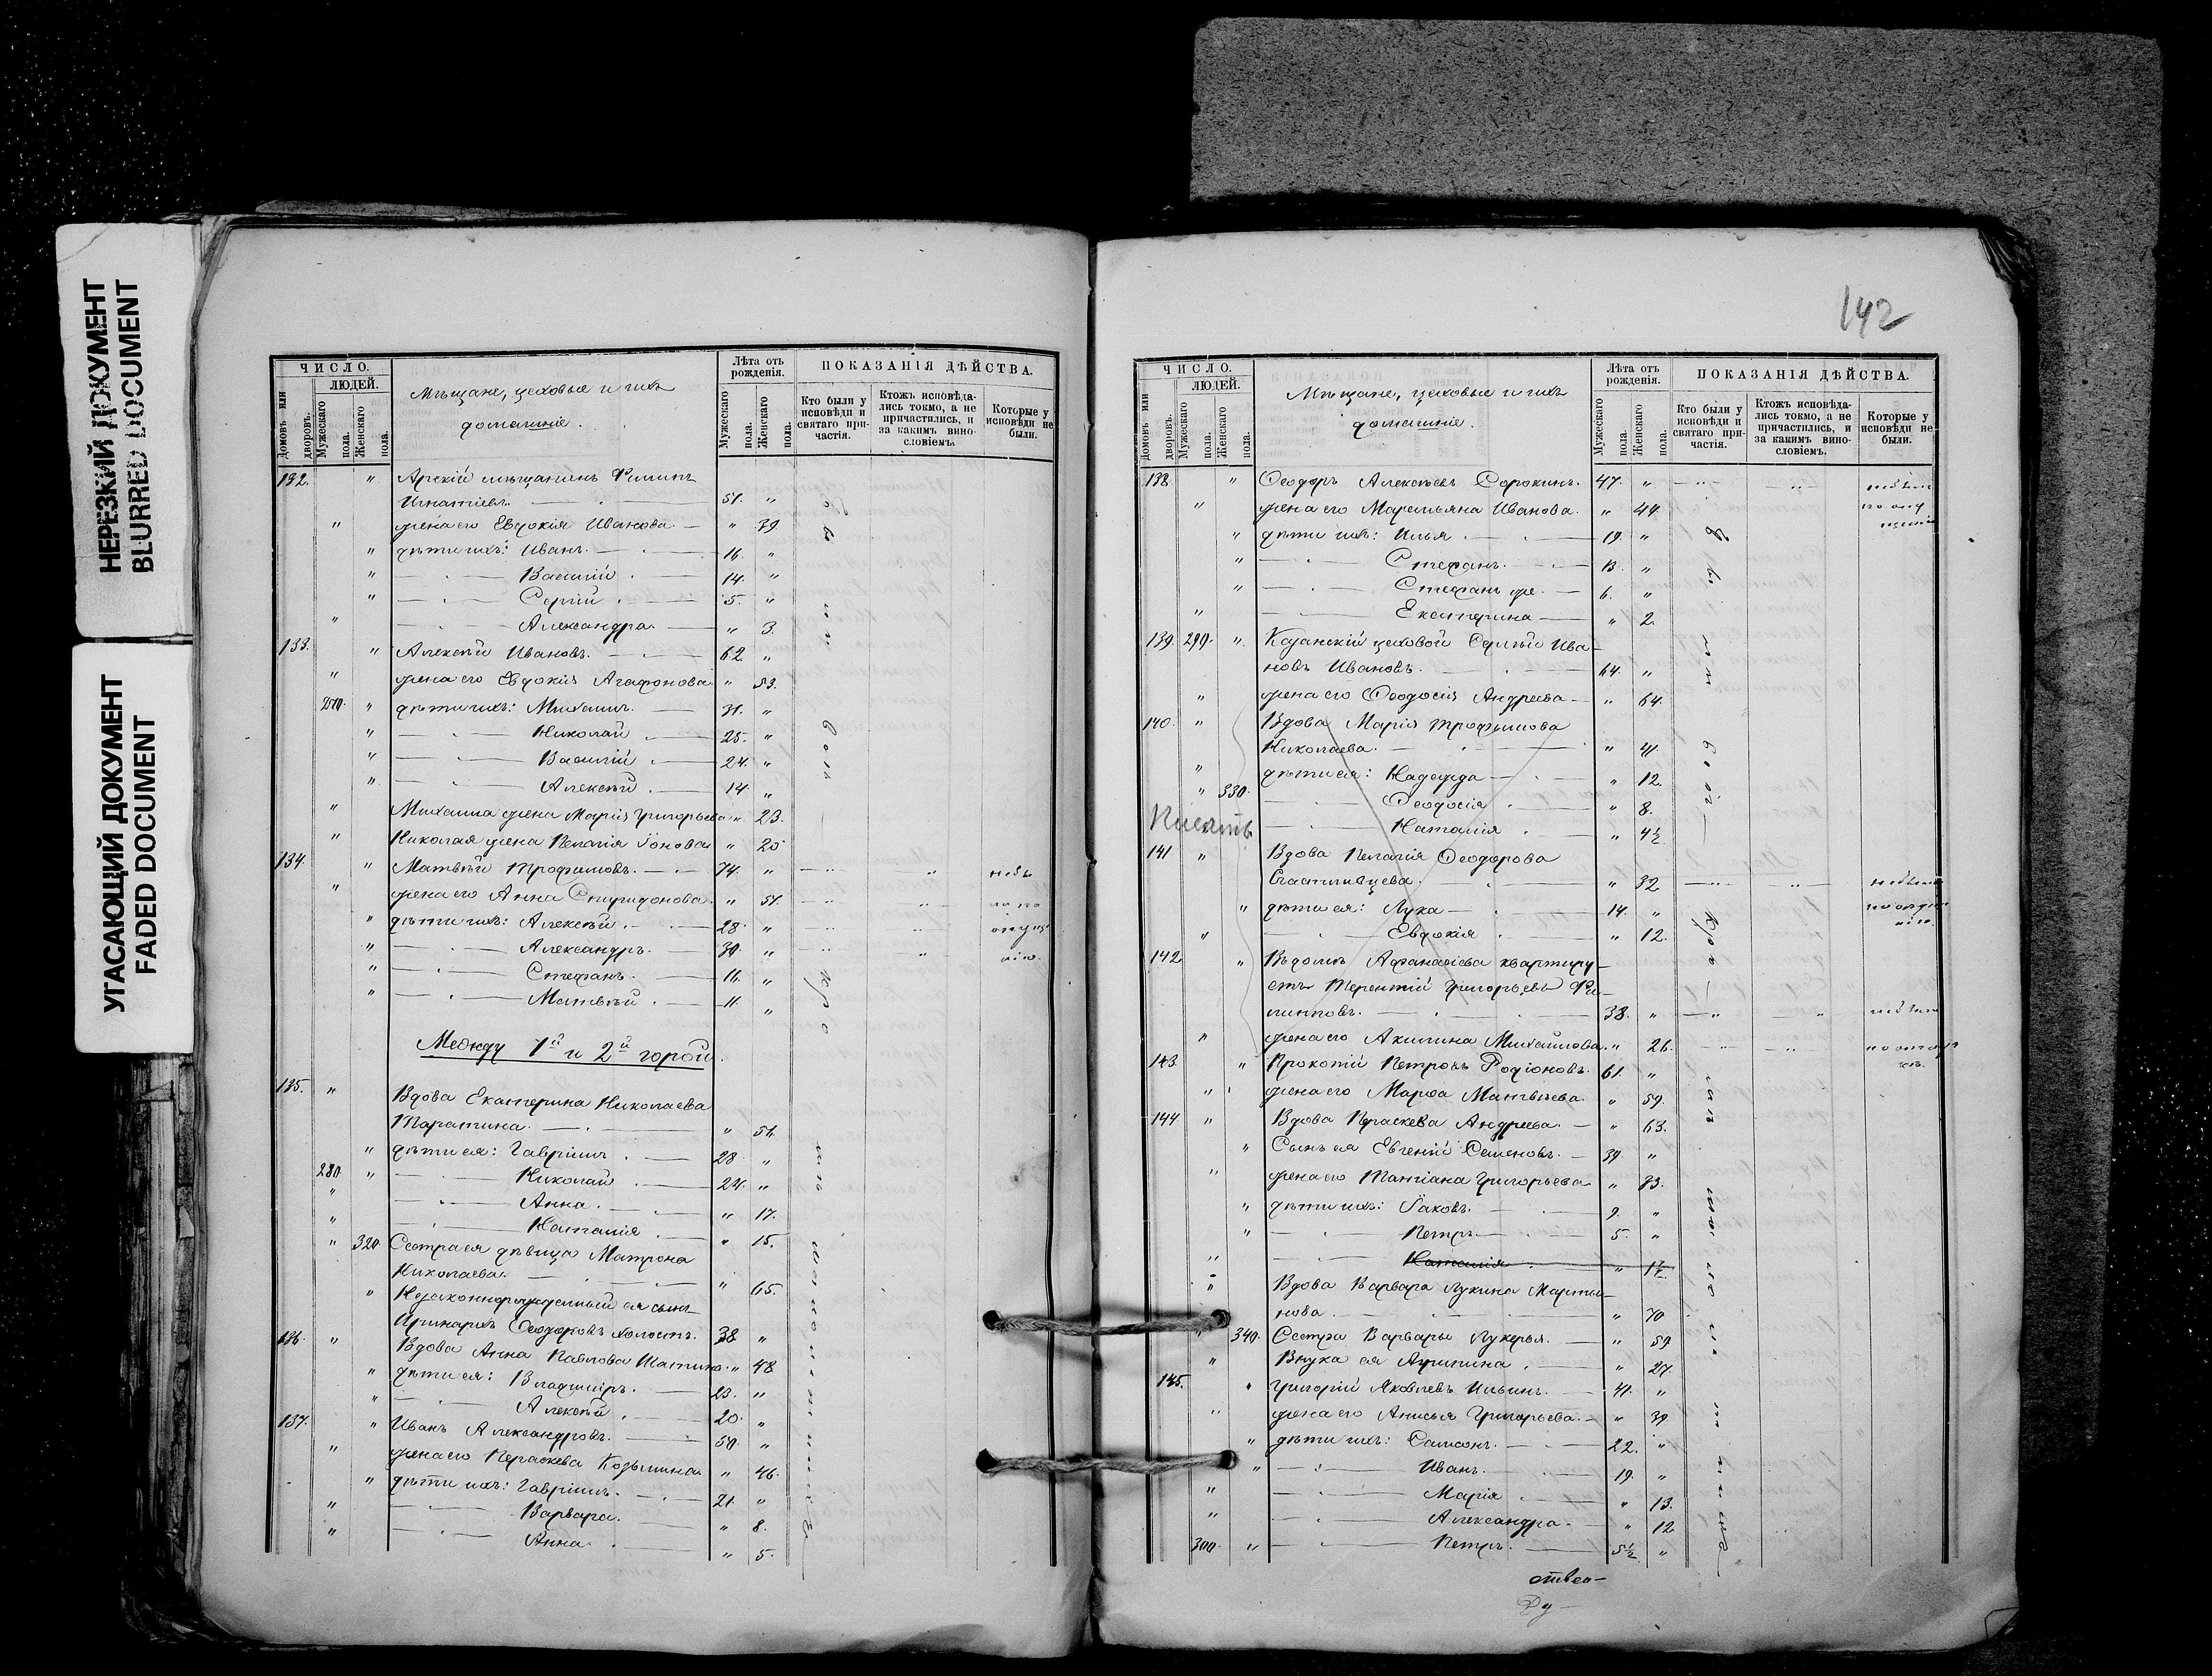 НЕРЕЗКИЙ ДОКУМЕНТ
BLURRED DOCUMENT
УГАСАЮЩИЙ ДОКУМЕНТ
FADED DOCUMENT
ЧИСЛО.
ЛЮДЕЙ.
Домовъ или дворовъ.
Мужескаго пола.
Женскаго пола.
Мѣщане, цеховые и ихъ
домашніе.
Лѣта отъ рожденія.
Мужескаго пола.
Женскаго пола.
ПОКАЗАНІЯ ДѢЙСТВА.
Кто были у исповѣди и святаго причастія.
Ктожъ исповѣдались токмо, а не причастились, и за какимъ винословіемъ.
Которые у исповѣди не были.
132. " Арскій мѣщанинъ Филипъ
Игнатіевъ. 51. "
" жена его Евдокія Иванова " 39
" дѣти ихъ: Иванъ. 16. "
" Василій 14. "
" Сергій 5. "
" Александра. " 3.
133. " Алексѣй Ивановъ. 62. "
" жена его Евдокія Агафонова " 53.
270. " дѣти ихъ: Михаилъ. 31. "
" Николай 25. "
" Василій 24. "
" Алексѣй 14. "
" Михаила жена Марія Григорьева " 23.
" Николая жена Пелагія Іонова " 25
134. " Матвѣй Трофимовъ. 74. " небы
" жена его Анна Спиридонова. " 51. ли по
" дѣти ихъ: Алексѣй. 28. " опущ
" Александръ. 30. " нію.
" Стефанъ. 16. "
" Матвѣй 11. "
Между 1й и 2й горой.
135. " Вдова Екатерина Николаева
Таратина. " 51.
" дѣти ея: Гавріилъ 28. "
280 " Николай 24. "
" Анна. " 17.
" Наталія " 15.
" 320. Сестра ея дѣвица Матрона
Николаева. " 65.
" Незаконнорожденный ея сынъ
Аполинарихъ Ѳеодоровъ холостъ. 38 "
136. " Вдова Анна Павлова Шатина. " 48
" дѣти ея: Владиміръ. 23. "
" Алексѣй 20. "
137. " Иванъ Александровъ. 50. "
" жена его Параскева Козьмина " 46.
" дѣти ихъ: Гавріилъ. 21. "
" Варвара. " 8.
" Анна. " 5.
142
ЧИСЛО.
ЛЮДЕЙ.
Домовъ или дворовъ.
Мужескаго пола.
Женскаго пола.
Мѣщане, цеховые и ихъ
домашніе.
Лѣта отъ рожденія.
Мужескаго пола.
Женскаго пола.
ПОКАЗАНІЯ ДѢЙСТВА.
Кто были у исповѣди и святаго причастія.
Ктожъ исповѣдались токмо, а не причастились, и за какимъ винословіемъ.
Которые у исповѣди не были.
138 " Ѳеодоръ Алексѣевъ Сорокинъ. 47. " небыли
" жена его Маремьяна Иванова. " 44. по опу
" дѣти ихъ: Илья 19. " щенію
" Стефанъ. 13. "
" Стефанъ же. 6. "
" Екатерина " 2.
139. 290. " Казанскій цеховой Сергѣй Ива-
новъ Ивановъ. 64. "
" жена его Ѳеодосія Андреева " 64.
140. " Вдова Марія Трофимова
Николаева. " 41.
" дѣти ея: Надежда " 12.
" 330. Ѳеодосія " 8.
Наталія " 4½
141 " Вдова Пелагія Ѳеодорова
Счастливцева. " 32 небыли
" дѣти ея: Лука 14. "
" Евдокія " 12.
142. " Въ домѣ Афанасіева квартиру-
етъ Терентій Григорьевъ Фи-
липповъ. 38. " небыли
" жена его Акилина Михайлова. " 26.
143. " Прокопій Петровъ Родіоновъ. 61. "
" жена его Марѳа Матвѣева. " 59.
144. " Вдова Параскева Андреева. " 63.
" Сынъ ея Евгеній Семеновъ. 39. "
" жена его Татіана Григорьева " 33.
" дѣти ихъ: Іаковъ. 9. "
" Петръ 5. "
" Наталія " 1½
" Вдова Варвара Лукина Марты-
нова. " 70
" 340. Сестра Варвары Лукерья. " 59
" Внука ея Агрипина " 27.
145. " Григорій Яковлевъ Ильинъ. 41. "
" жена его Анисья Григорьева. " 39.
" дѣти ихъ: Самсонъ. 22. "
" Иванъ. 19. "
" Марія " 13.
" Александра. " 12
300. " Петръ. 5½ "